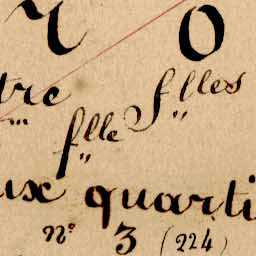 r o
tre f^lles
f^lle
ux quarti
n° 3 (224)